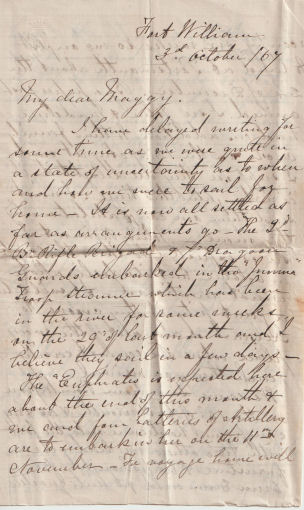 Fort William
3d October /67
My dear Maggy.
I have delayed writing for
some time as we were quite in
a state of uncertainty as to when
and how we were to sail for
home - It is now all settled as
far as arrangements go - The 2d
Bn Rifle Brigade & 7th Dragoon
Guards embarked in the "Jumna"
Troop steamer which has been
in the river for some weeks
on the 29th of last month and I
believe they sail in a few days -
The "Euphrates" is expected here
about the end of this month &
we and four batteries of Artillery
are to embark in her on the 11th
November - The voyage home will